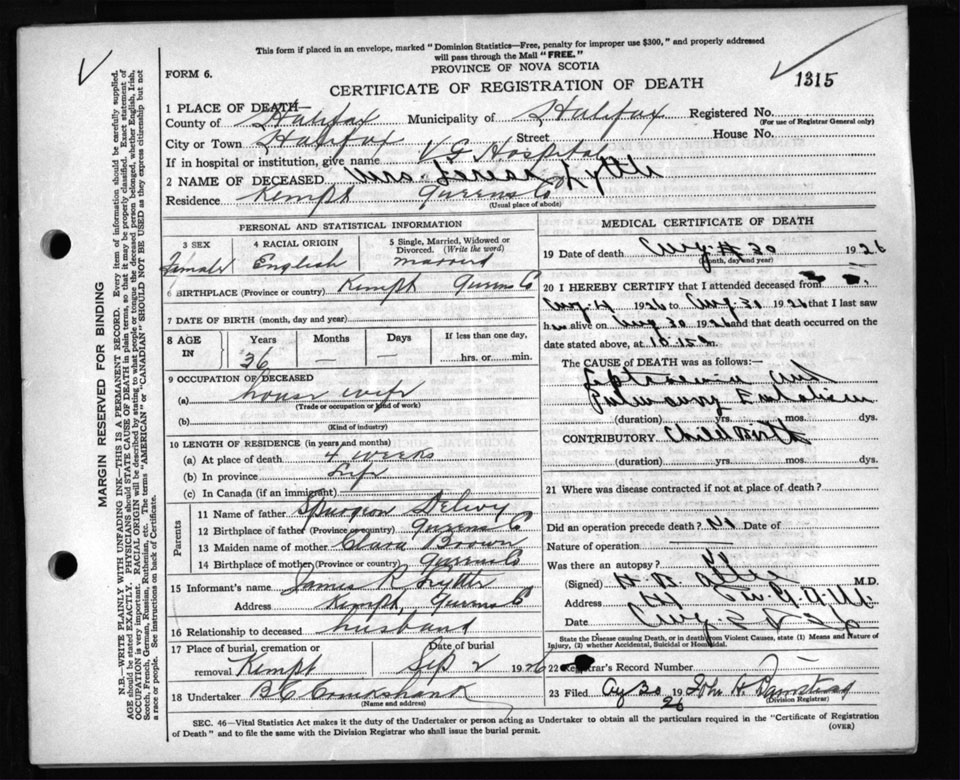 This form if placed in an envelope, marked "Dominion Statistics—Free, penalty for improper use $300," and properly addressed
will pass through the Mail "FREE."
PROVINCE OF NOVA SCOTIA
FORM 6.
CERTIFICATE OF REGISTRATION OF DEATH
1315
1 PLACE OF DEATH—
County of Halifax Municipality of Halifax Registered No.
(For use of Registrar General only)
City or Town Halifax Street House No.
If in hospital or institution, give name V G Hospital
2 NAME OF DECEASED Mrs. Teresa Lyttle
Residence Kempt Queens Co
(Usual place of abode)
PERSONAL AND STATISTICAL INFORMATION
3 SEX 4 RACIAL ORIGIN 5 Single, Married, Widowed or Divorced. (Write the word)
Female English married
6 BIRTHPLACE (Province or country) Kempt Queens Co
7 DATE OF BIRTH (month, day and year)
8 AGE IN Years Months Days If less than one day,
36 — — hrs. or min.
9 OCCUPATION OF DECEASED
(a) house wife
(Trade or occupation or kind of work)
(b)
(Kind of industry)
10 LENGTH OF RESIDENCE (in years and months)
(a) At place of death 4 weeks
(b) In province Life
(c) In Canada (if an immigrant)
Parents
11 Name of father Spurgeon
12 Birthplace of father (Province or country) Queens Co
13 Maiden name of mother Clara Brown
14 Birthplace of mother (Province or country) Queens Co
15 Informant's name James R Lyttle
Address Kempt, Queens Co
16 Relationship to deceased husband
17 Place of burial, cremation or removal Kempt Date of burial Sep 2 1926
18 Undertaker B C Cruikshank
(Name and address)
MEDICAL CERTIFICATE OF DEATH
19 Date of death Aug. 30 1926
(month, day and year)
20 I HEREBY CERTIFY that I attended deceased from
Aug 4 1926 to Aug. 30 1926 that I last saw
her alive on Aug 30 1926 and that death occurred on the
date stated above, at 10.15 m.
The CAUSE OF DEATH was as follows:—
Septicaemia and
Pulmonary Embolism
(duration) yrs. mos. dys.
CONTRIBUTORY Child birth
(duration) yrs. mos. dys.
21 Where was disease contracted if not at place of death?
Did an operation precede death? No Date of
Nature of operation
Was there an autopsy?
(Signed) M.D.
Address
Date Aug
State the Disease causing Death, or in death from Violent Causes, state (1) Means and Nature of
Injury, (2) whether Accidental, Suicidal or Homicidal.
22 Registrar's Record Number
23 Filed 30 1926 John H
(Division Registrar)
SEC. 46—Vital Statistics Act makes it the duty of the Undertaker or person acting as Undertaker to obtain all the particulars required in the "Certificate of Registration
of Death" and to file the same with the Division Registrar who shall issue the burial permit.
(OVER)
MARGIN RESERVED FOR BINDING
N.B.—WRITE PLAINLY WITH UNFADING INK—THIS IS A PERMANENT RECORD. Every item of information should be carefully supplied.
AGE should be stated EXACTLY. PHYSICIANS should STATE CAUSE OF DEATH in plain terms, so that it may be properly classified. Exact statement of
OCCUPATION is very important. RACIAL ORIGIN will be described by stating to what people or tongue the deceased person belonged, whether English, Irish,
Scotch, French, German, Russian, Ruthenian, etc. The terms "AMERICAN" or "CANADIAN" SHOULD NOT BE USED as they express citizenship but not
a race or people. See instructions on back of Certificate.